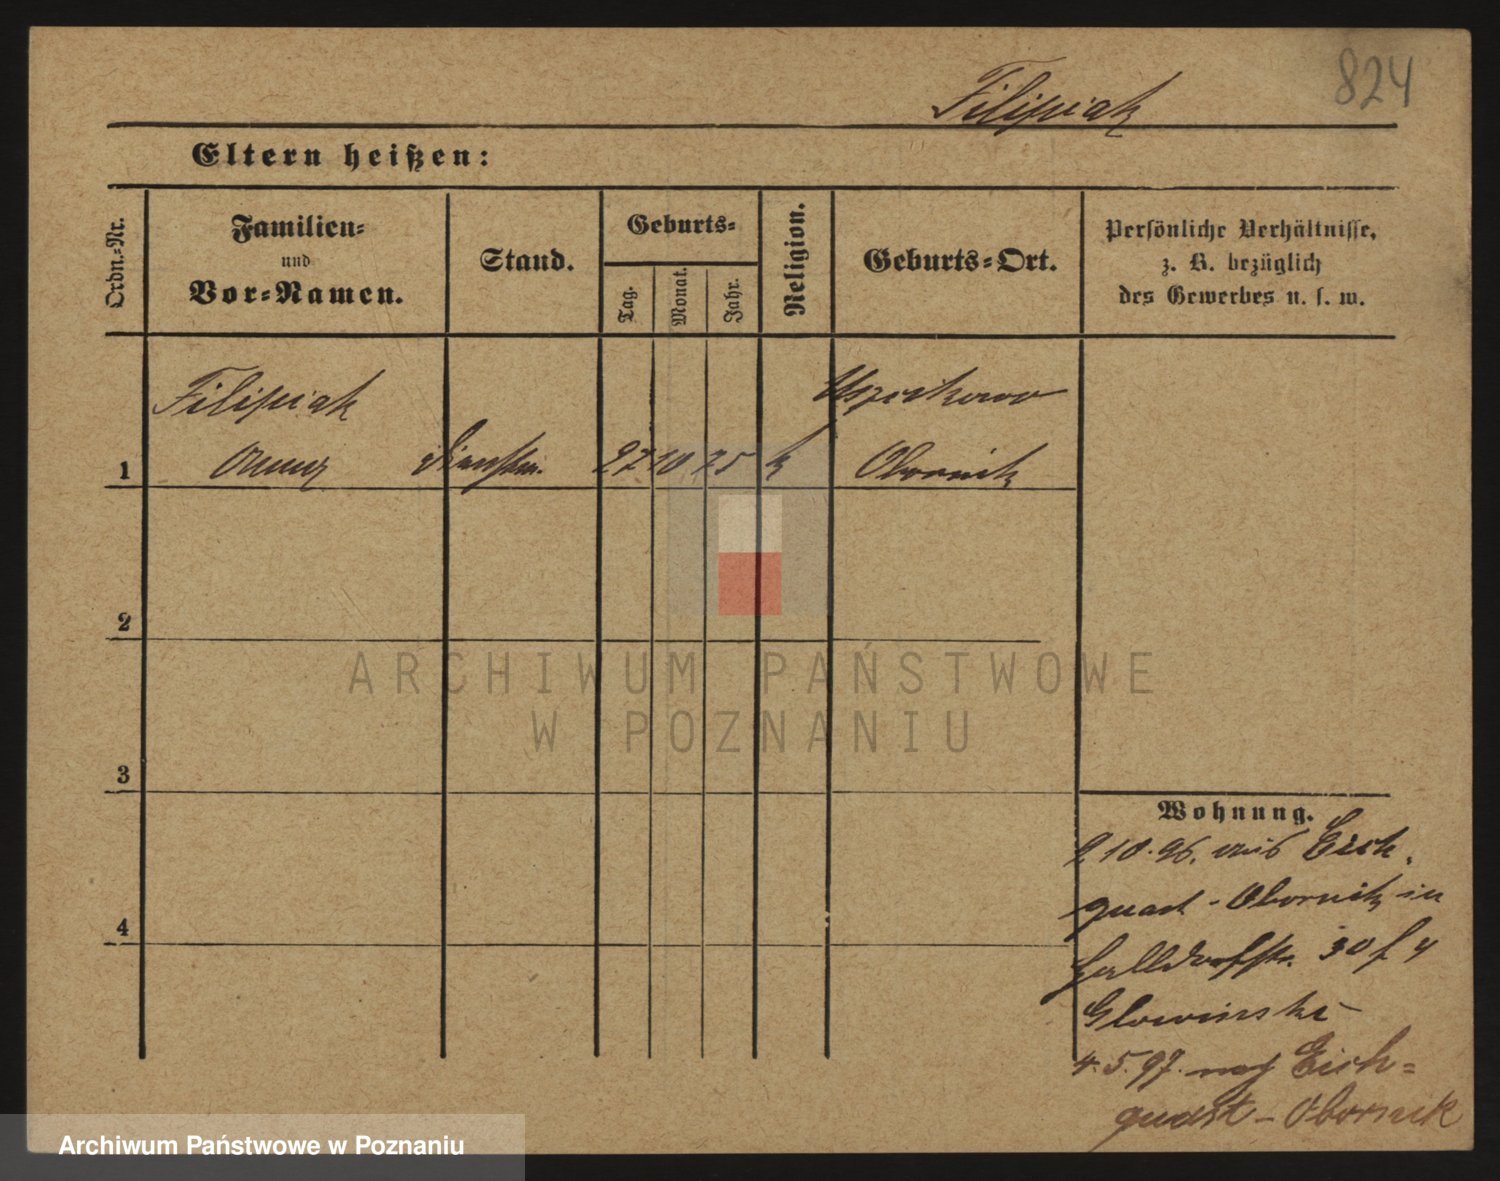 824
Filipiak
Eltern heißen:
Ordn.-Nr.
Familien-
und
Vor-Namen.
Stand.
Geburts-
Tag.
Monat.
Jahr.
Religion.
Geburts-Ort.
Persönliche Verhältnisse,
z. B. bezüglich
des Gewerbes u. s. w.
Filipiak
Uszikowo
1
27 10 75 k
Obornik
2
ARCHIWUM PAŃSTWOWE
W POZNANIU
3
Wohnung.
2.10.96. aus Eich
quast - Obornik in
Halldorfstr. 30 f 4
Glowinski
4
4.5.97. nach Eich=
quast - Obornik
Archiwum Państwowe w Poznaniu